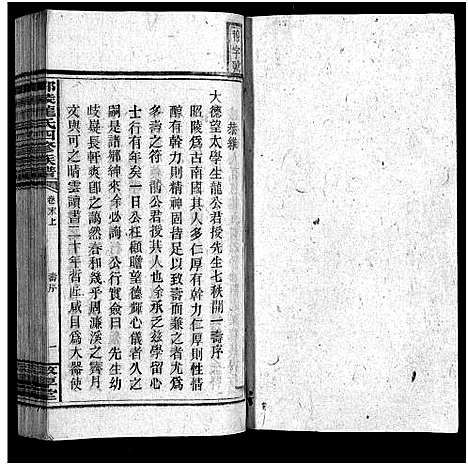 恭維
大德望太學生龍公君授先生七秩開一壽序
昭陵為古南國其人多仁厚有幹力仁厚則性情
醇有幹力則精神固皆足以致壽而兼之者尤為
多壽之符 龍公君授其人也余承乏茲學留心
士行有年矣一日公枉顧瞻望德輝心儀者久之
嗣是諸鄉紳來余必詢 公行實僉曰 先生幼
歧嶷長軒爽卽之藹然春和幾乎周濂溪之霽月
文與可之晴雲讀書二十年哲匠咸目為大器使
龍氏四修族譜
卷末上
壽序
一
敦厚堂